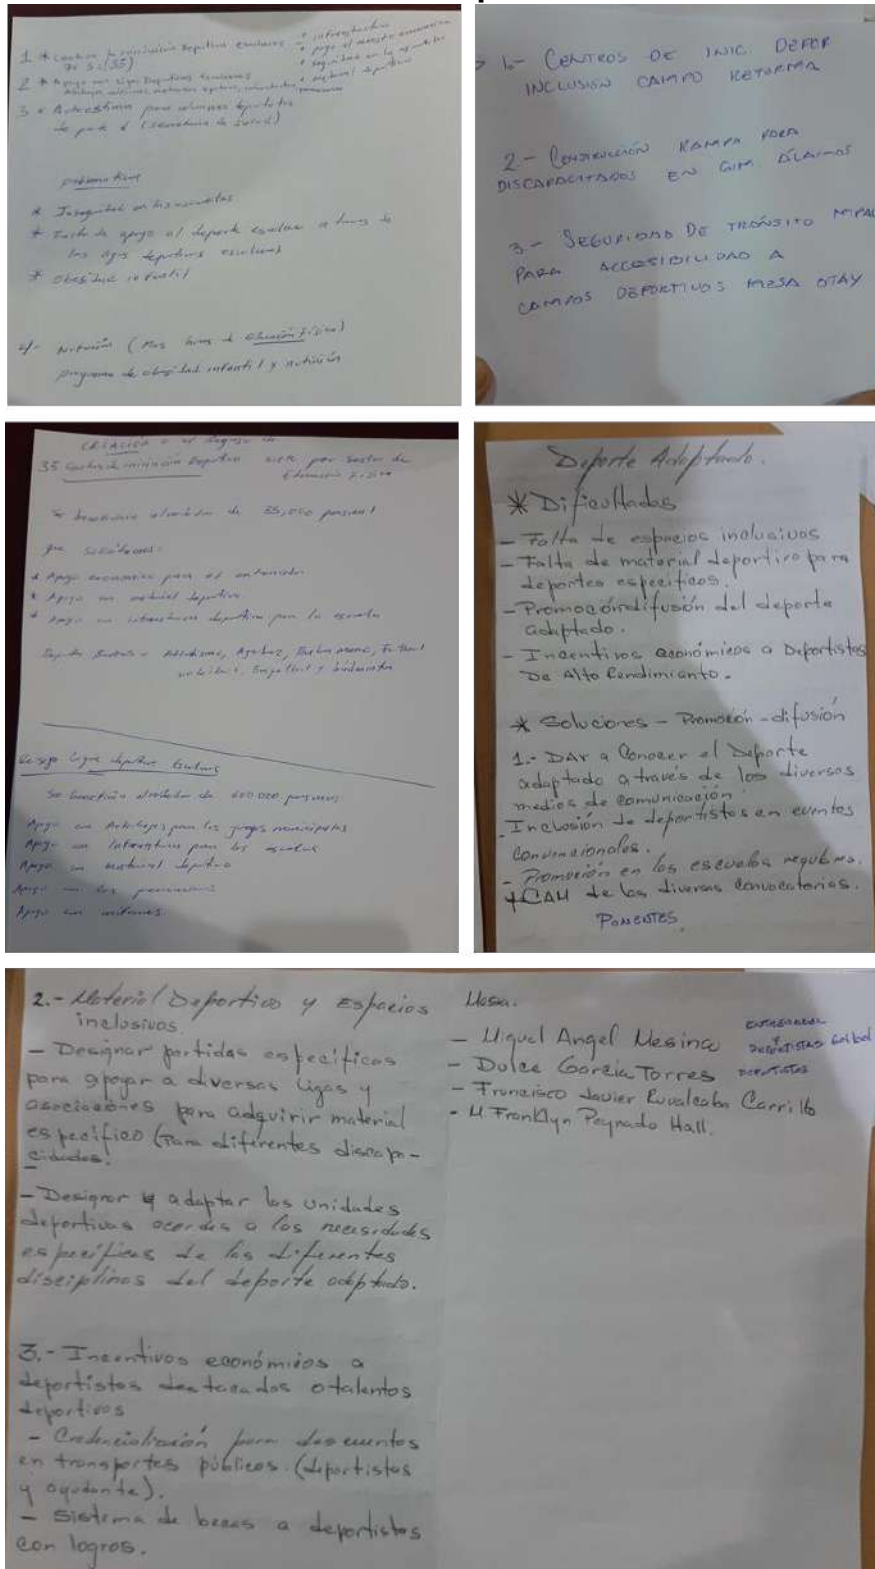 2 * Apoyo con ligas deportivas escolares
problematicas
* Inseguridad en las escuelas
* Falta de apoyo al deporte escolar a traves de
las ligas deportivas escolares
* obesidad infantil
4- Nutrición (Mas horas de educación física)
programa de obesidad infantil y nutrición
1.- CENTROS DE INIC. DEPOR
INCLUSIÓN CAMPO REFORMA
2.- CONSTRUCCIÓN RAMPA PARA
DISCAPACITADOS EN GIM ALAMOS
3- SEGURIDAD DE TRÁNSITO MPAL
PARA ACCESIBILIDAD A
CAMPOS DEPORTIVOS MESA OTAY
CREACIÓN o el Regreso de
35 Centros de iniciación Deportiva siete por sector de
Educación Física
Se beneficiaria alrededor de 35,000 personas
que solicitamos:
* Apoyo economico para el entrenador
* Apoyo con material deportivo
* Apoyo con infraestructura deportiva para la escuela
Atletismo, Ajedrez,
Ligas deportivas Escolares
Se beneficia alrededor de 600.000 personas
Apoyo con infraestructura para las escuelas
Apoyo con material deportivo
Apoyo con uniformes
Deporte Adaptado.
* Dificultades
- Falta de espacios inclusivos
- Falta de material deportivo para
deportes especificos.
- Promoción difusión del deporte
adaptado.
- Incentivos económicos a Deportistas
De Alto Rendimiento.
* Soluciones - Promoción - difusión
1.- DAr a Conocer el Deporte
adaptado a través de los diversos
medios de comunicación
- Inclusión de deportistas en eventos
Convencionales.
- Promoción en las escuelas regulares.
y CAM de las diversas Convocatorias.
PONENTES
2.- Material Deportivo y Espacios
inclusivos.
- Designar partidas específicas
para apoyar a diversas ligas y
asociaciones para adquirir material
específico (Para diferentes discapa-
cidades.
- Designar y adaptar las unidades
deportivas acordes a las necesidades
específicas de las diferentes
disciplinas del deporte adaptado.
3.- Incentivos económicos a
deportistas destacados o talentos
deportivos
- Credencialización para descuentos
en transportes públicos. (deportistas
y ayudante).
- Sistema de becas a deportistas
con logros.
Mesa.
- Miguel Angel Mesina
- Dulce García Torres
- Francisco Javier Ruvalcaba Carrillo
- M Franklyn Peynado Hall.